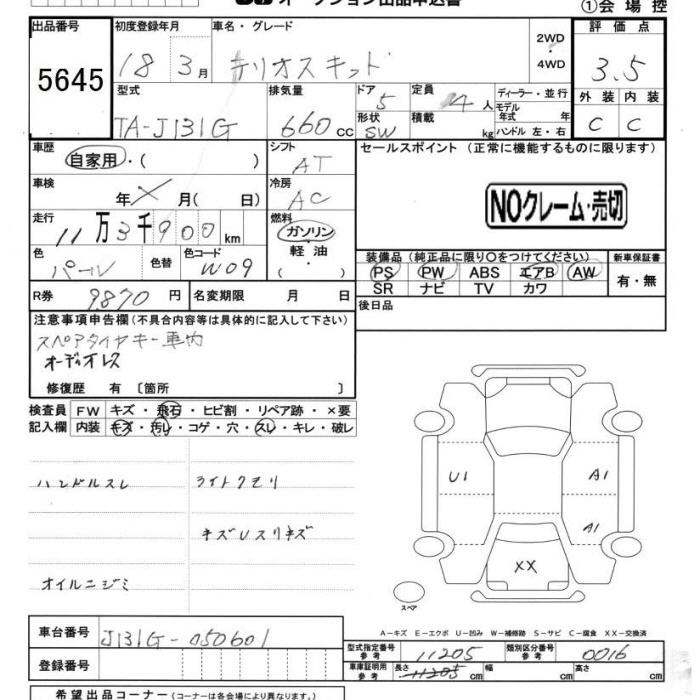 オークション出品申込書
①会場控
出品番号
5645
初度登録年月
18 3月
車名・グレード
テリオスキッド
2WD
・
4WD
評価点
3.5
外装 内装
C C
型式
TA-J131G
排気量
660cc
ドア
5
形状
SW
定員
4人
積載
kg
ディーラー・並行
モデル年式 年
ハンドル 左・右
車歴
自家用・( )
シフト
AT
車検
年 × 月( 日)
冷房
AC
走行
11万3千900km
燃料
ガソリン
・
軽油
・
( )
色
パール
色替
色コード
W09
R券 9870円
名変期限 月 日
セールスポイント (正常に機能するものに限ります)
NOクレーム・売切
装備品 (純正品に限り○をつけてください)
PS PW ABS エアB AW
SR ナビ TV カワ
新車保証書
有・無
後日品
注意事項申告欄(不具合内容等は具体的に記入して下さい)
スペアタイヤキー車内
オーディオレス
修復歴 有 〔箇所 〕
検査員
記入欄
FW キズ・飛石・ヒビ割・リペア跡・×要
内装 キズ・汚レ・コゲ・穴・スレ・キレ・破レ
ハンドルスレ
ライトクモリ
キズUスリキズ
オイルニジミ
U1
A1
A1
XX
スペア
A-キズ E-エクボ U-凹み W-補修跡 S-サビ C-腐食 XX-交換済
車台番号
J131G-050601
登録番号
型式指定番号
参考
11205
類別区分番号
参考
0016
車庫証明用
参考
長さ 11205 cm
幅 cm
高さ cm
希望出品コーナー(コーナーは各会場により異なります。)